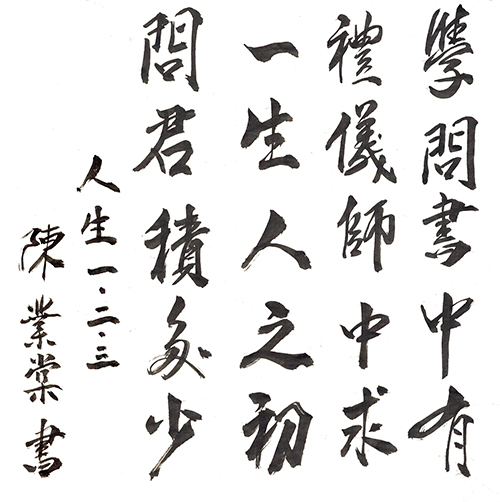 學問書中有
禮儀師中求
一生人之初
問君積多少
人生一·二·三
陳業棠書